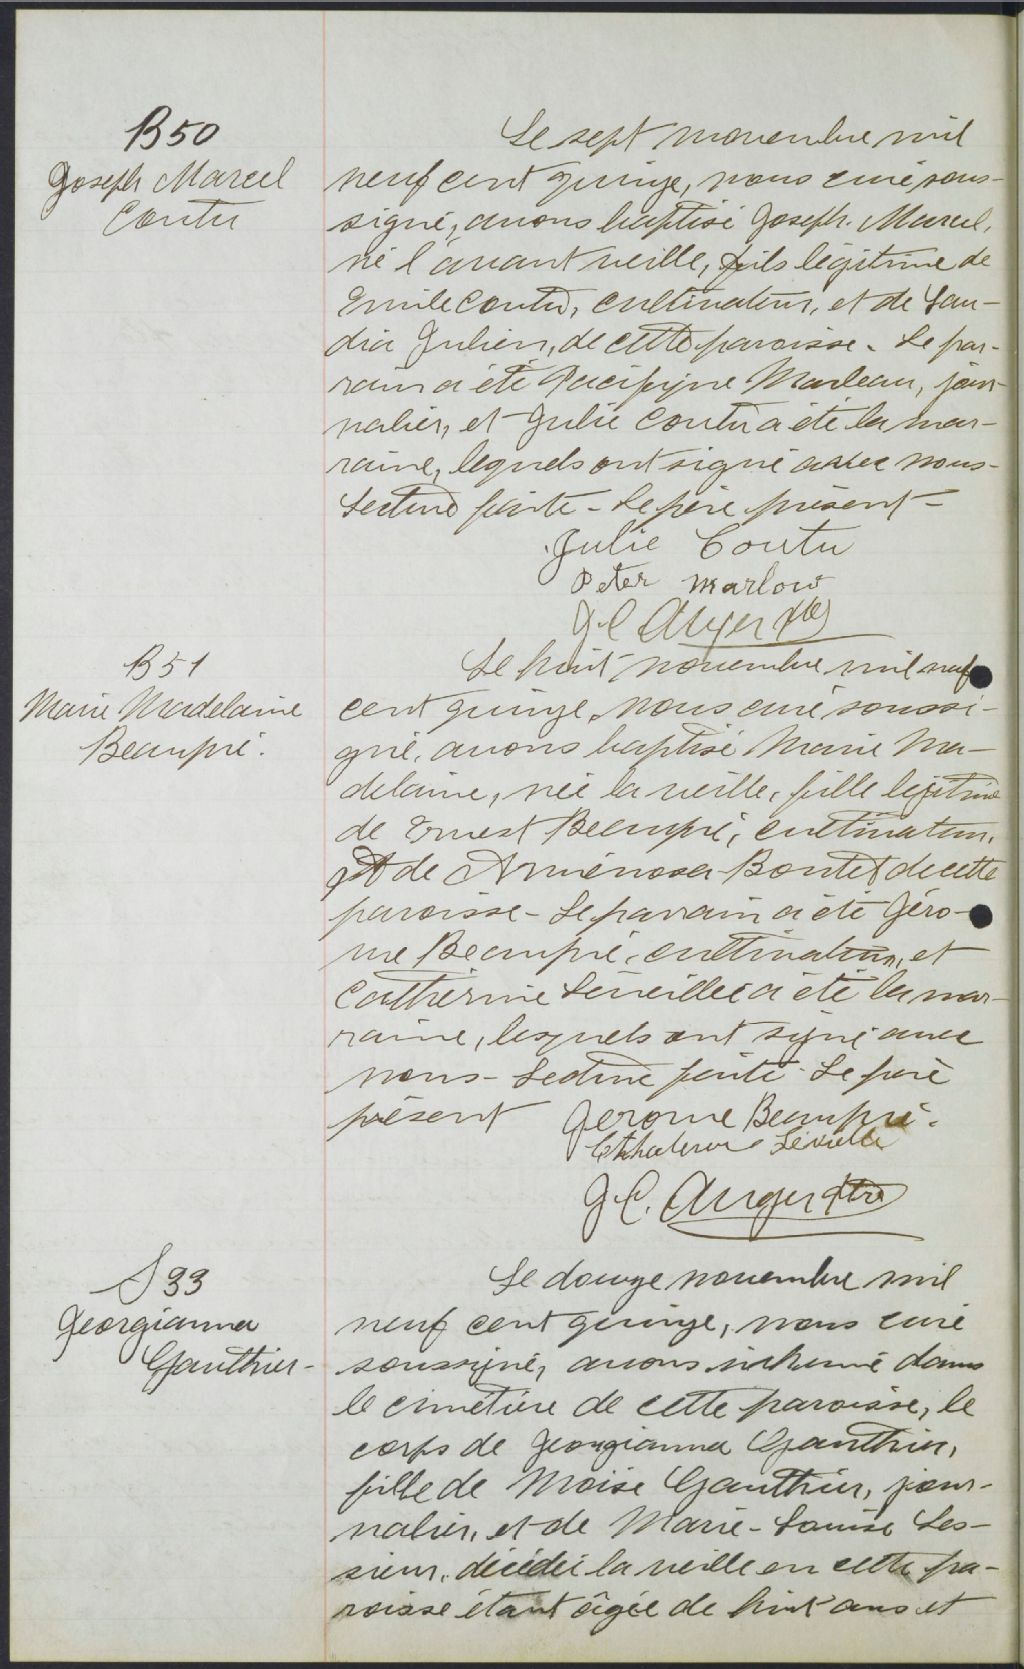 B50
Joseph Marcel
Coutu
Le sept novembre mil
neuf cent quinze, nous curé sous-
signé, avons baptisé Joseph. Marcel,
né l'avant veille, fils légitime de
Emile Coutu, cultivateur, et de Lau-
dia Julien, de cette paroisse. Le par-
rain a été Pacifique Marleau, jour-
nalier, et Julie Coutu a été la mar-
raine, lequels ont signé avec nous-
Lecture faite - Le père présent -
Julie Coutu
Peter Marlow
J. C. Auger Ptre
B51
Marie Madelaine
Beaupré.
Le huit novembre mil neuf
cent quinze, nous curé soussi-
gné, avons baptisé Marie Ma-
delaine, née la veille, fille légitime
de Ernest Beaupré, cultivateur,
et de Arménosa Boutet de cette
paroisse - Le parrain a été Jéro-
me Beaupré, cultivateur, et
Catherine Léveillée a été la mar-
raine, lesquels ont signé avec
nous - Lecture faite - Le père
présent
Jerome Beaupré.
Léveillé
J. C. Auger Ptre
S 33
Georgianna
Gauthier -
Le douze novembre mil
neuf cent quinze, nous curé
soussigné, avons inhumé dans
le cimetière de cette paroisse, le
corps de Georgianna Gauthier,
fille de Moise Gauthier, jour-
nalier, et de Marie-Louise Les-
sieur, décédée la veille en cette pa-
roisse étant âgée de huit ans et